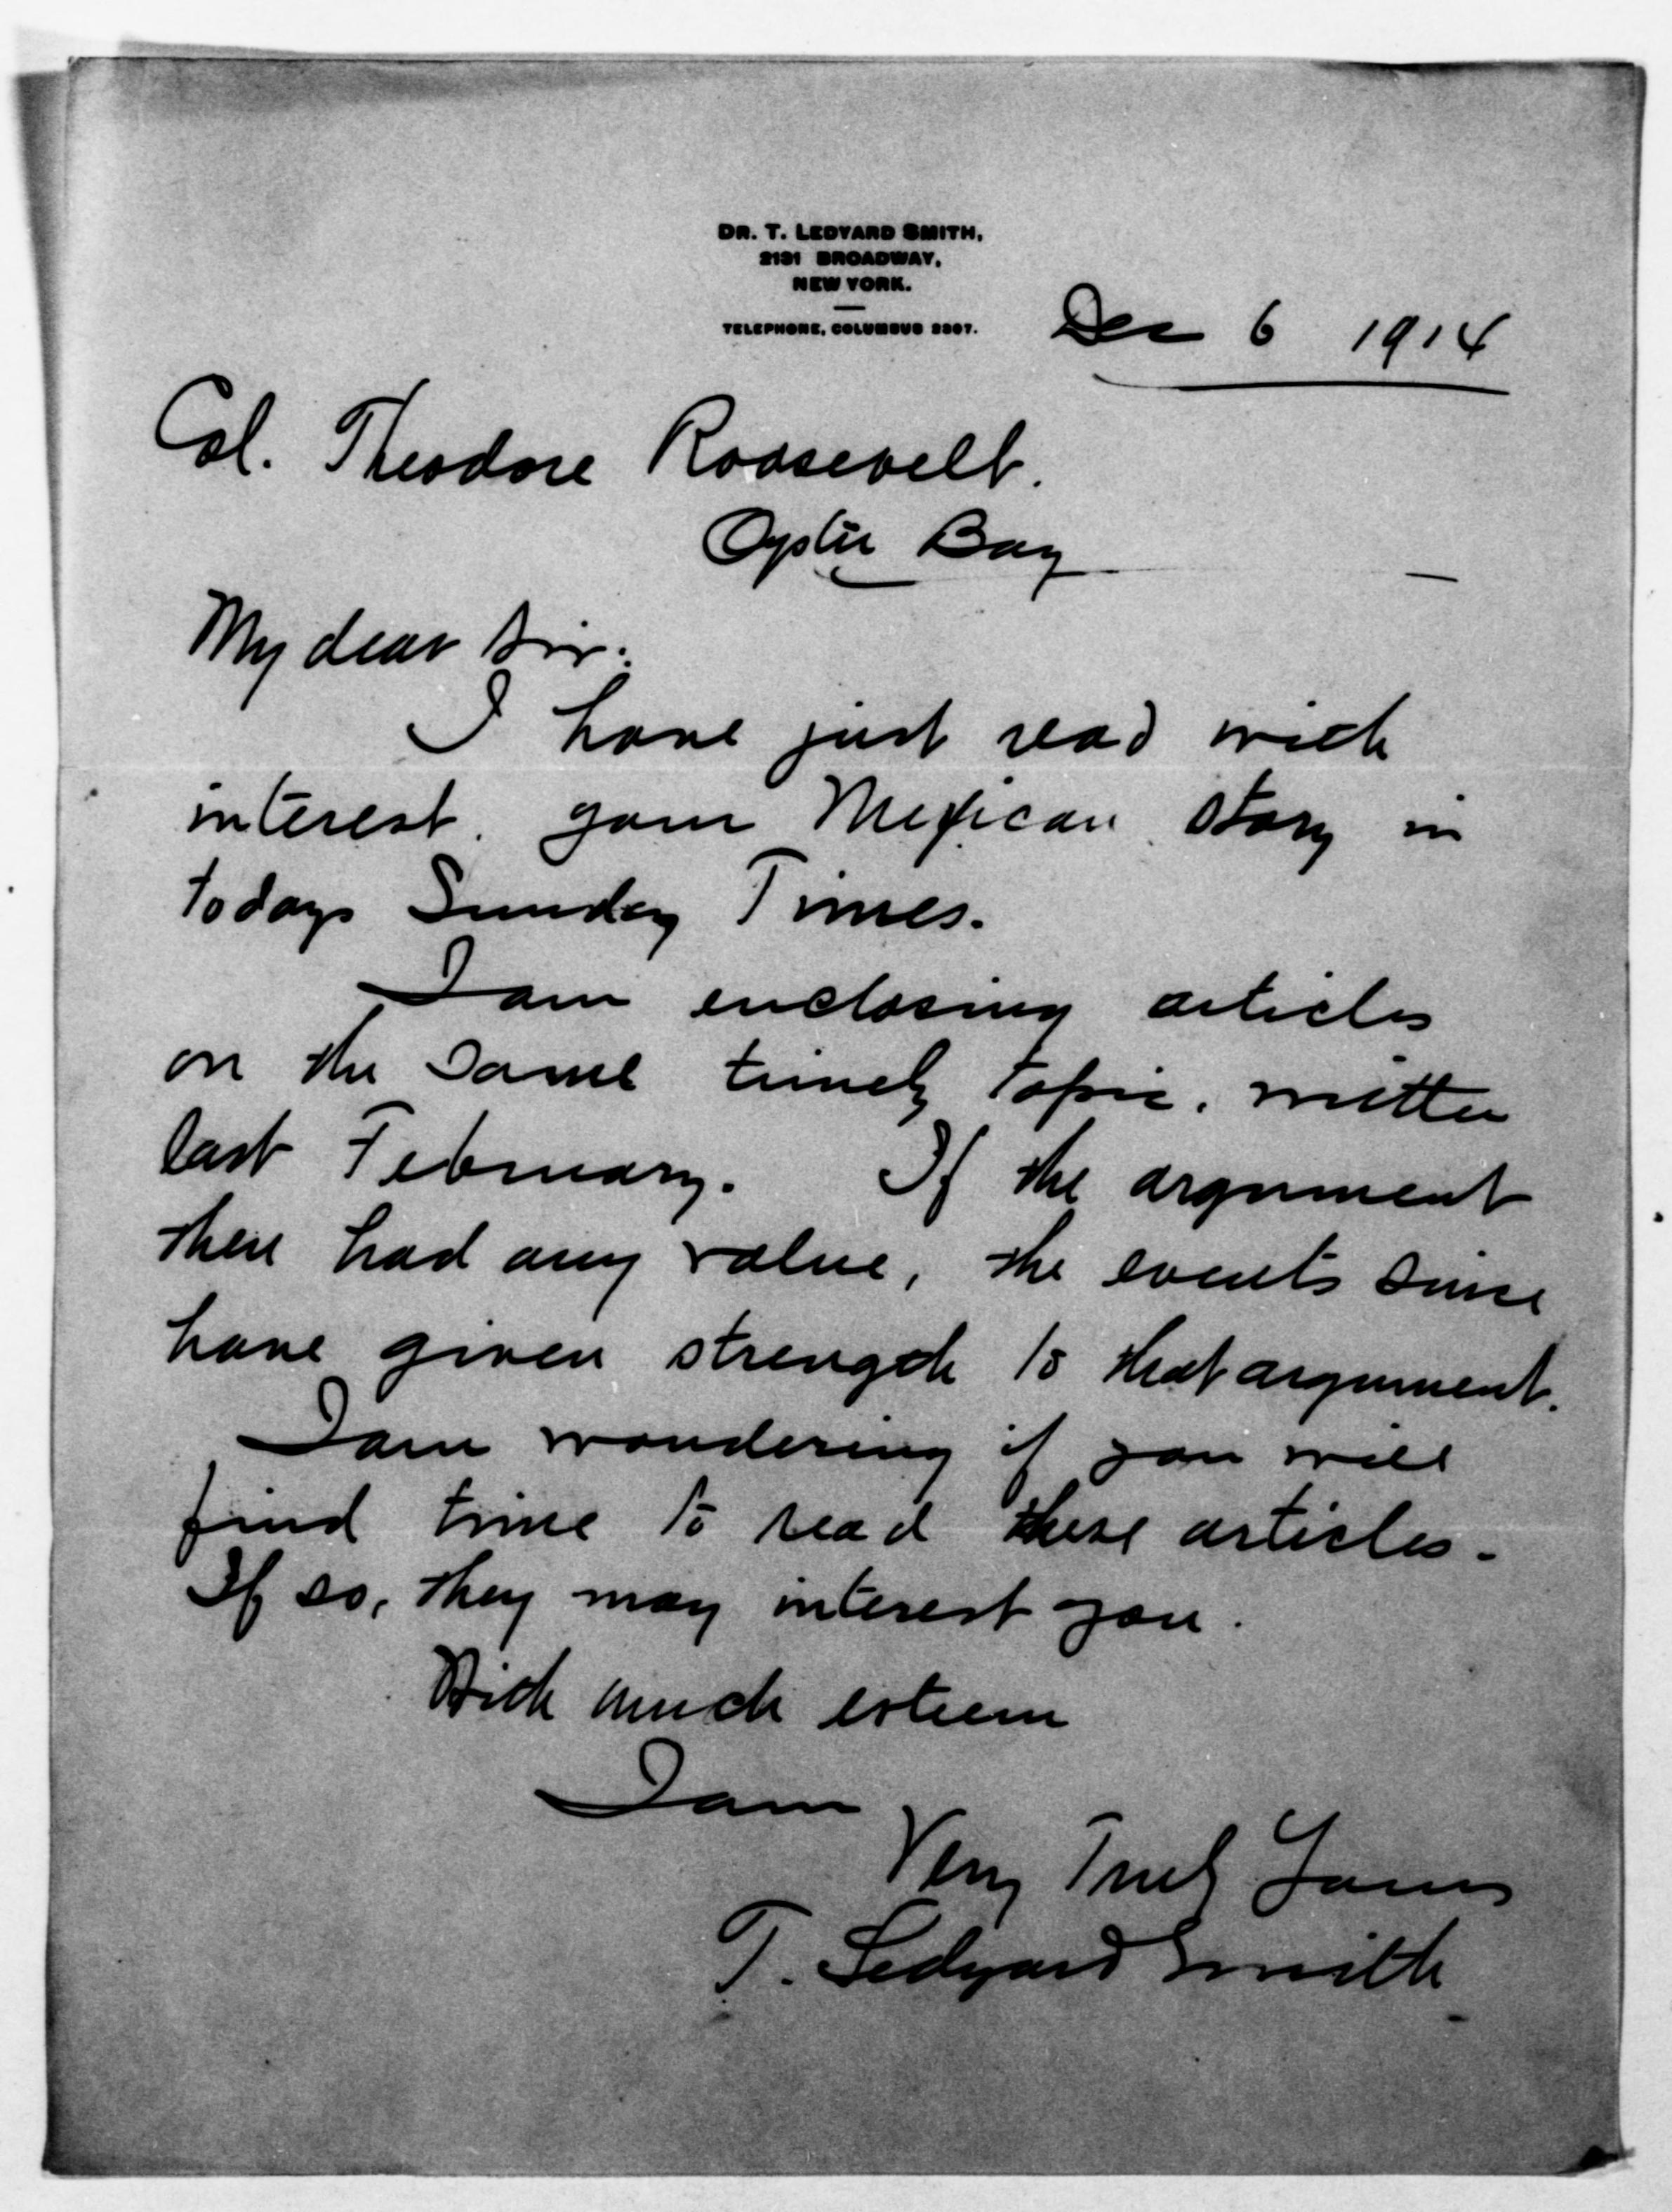 DR. T. LEDYARD SMITH,
2131 BROADWAY,
NEW YORK.
TELEPHONE, COLUMBUS
Dec 6 1914
Col. Theodore Roosevelt.
Oyster Bay
My dear Sir:
I have just read with
interest. your Mexican story in
todays Sunday Times.
I am enclosing articles
on the same timely topic, written
last February. If the argument
there had any value, the events since
have given strength to that argument.
I am wondering if you will
find time to read these articles.
If so, they may interest you.
With much esteem
I am
Very Truly Yours
T. Ledyard Smith